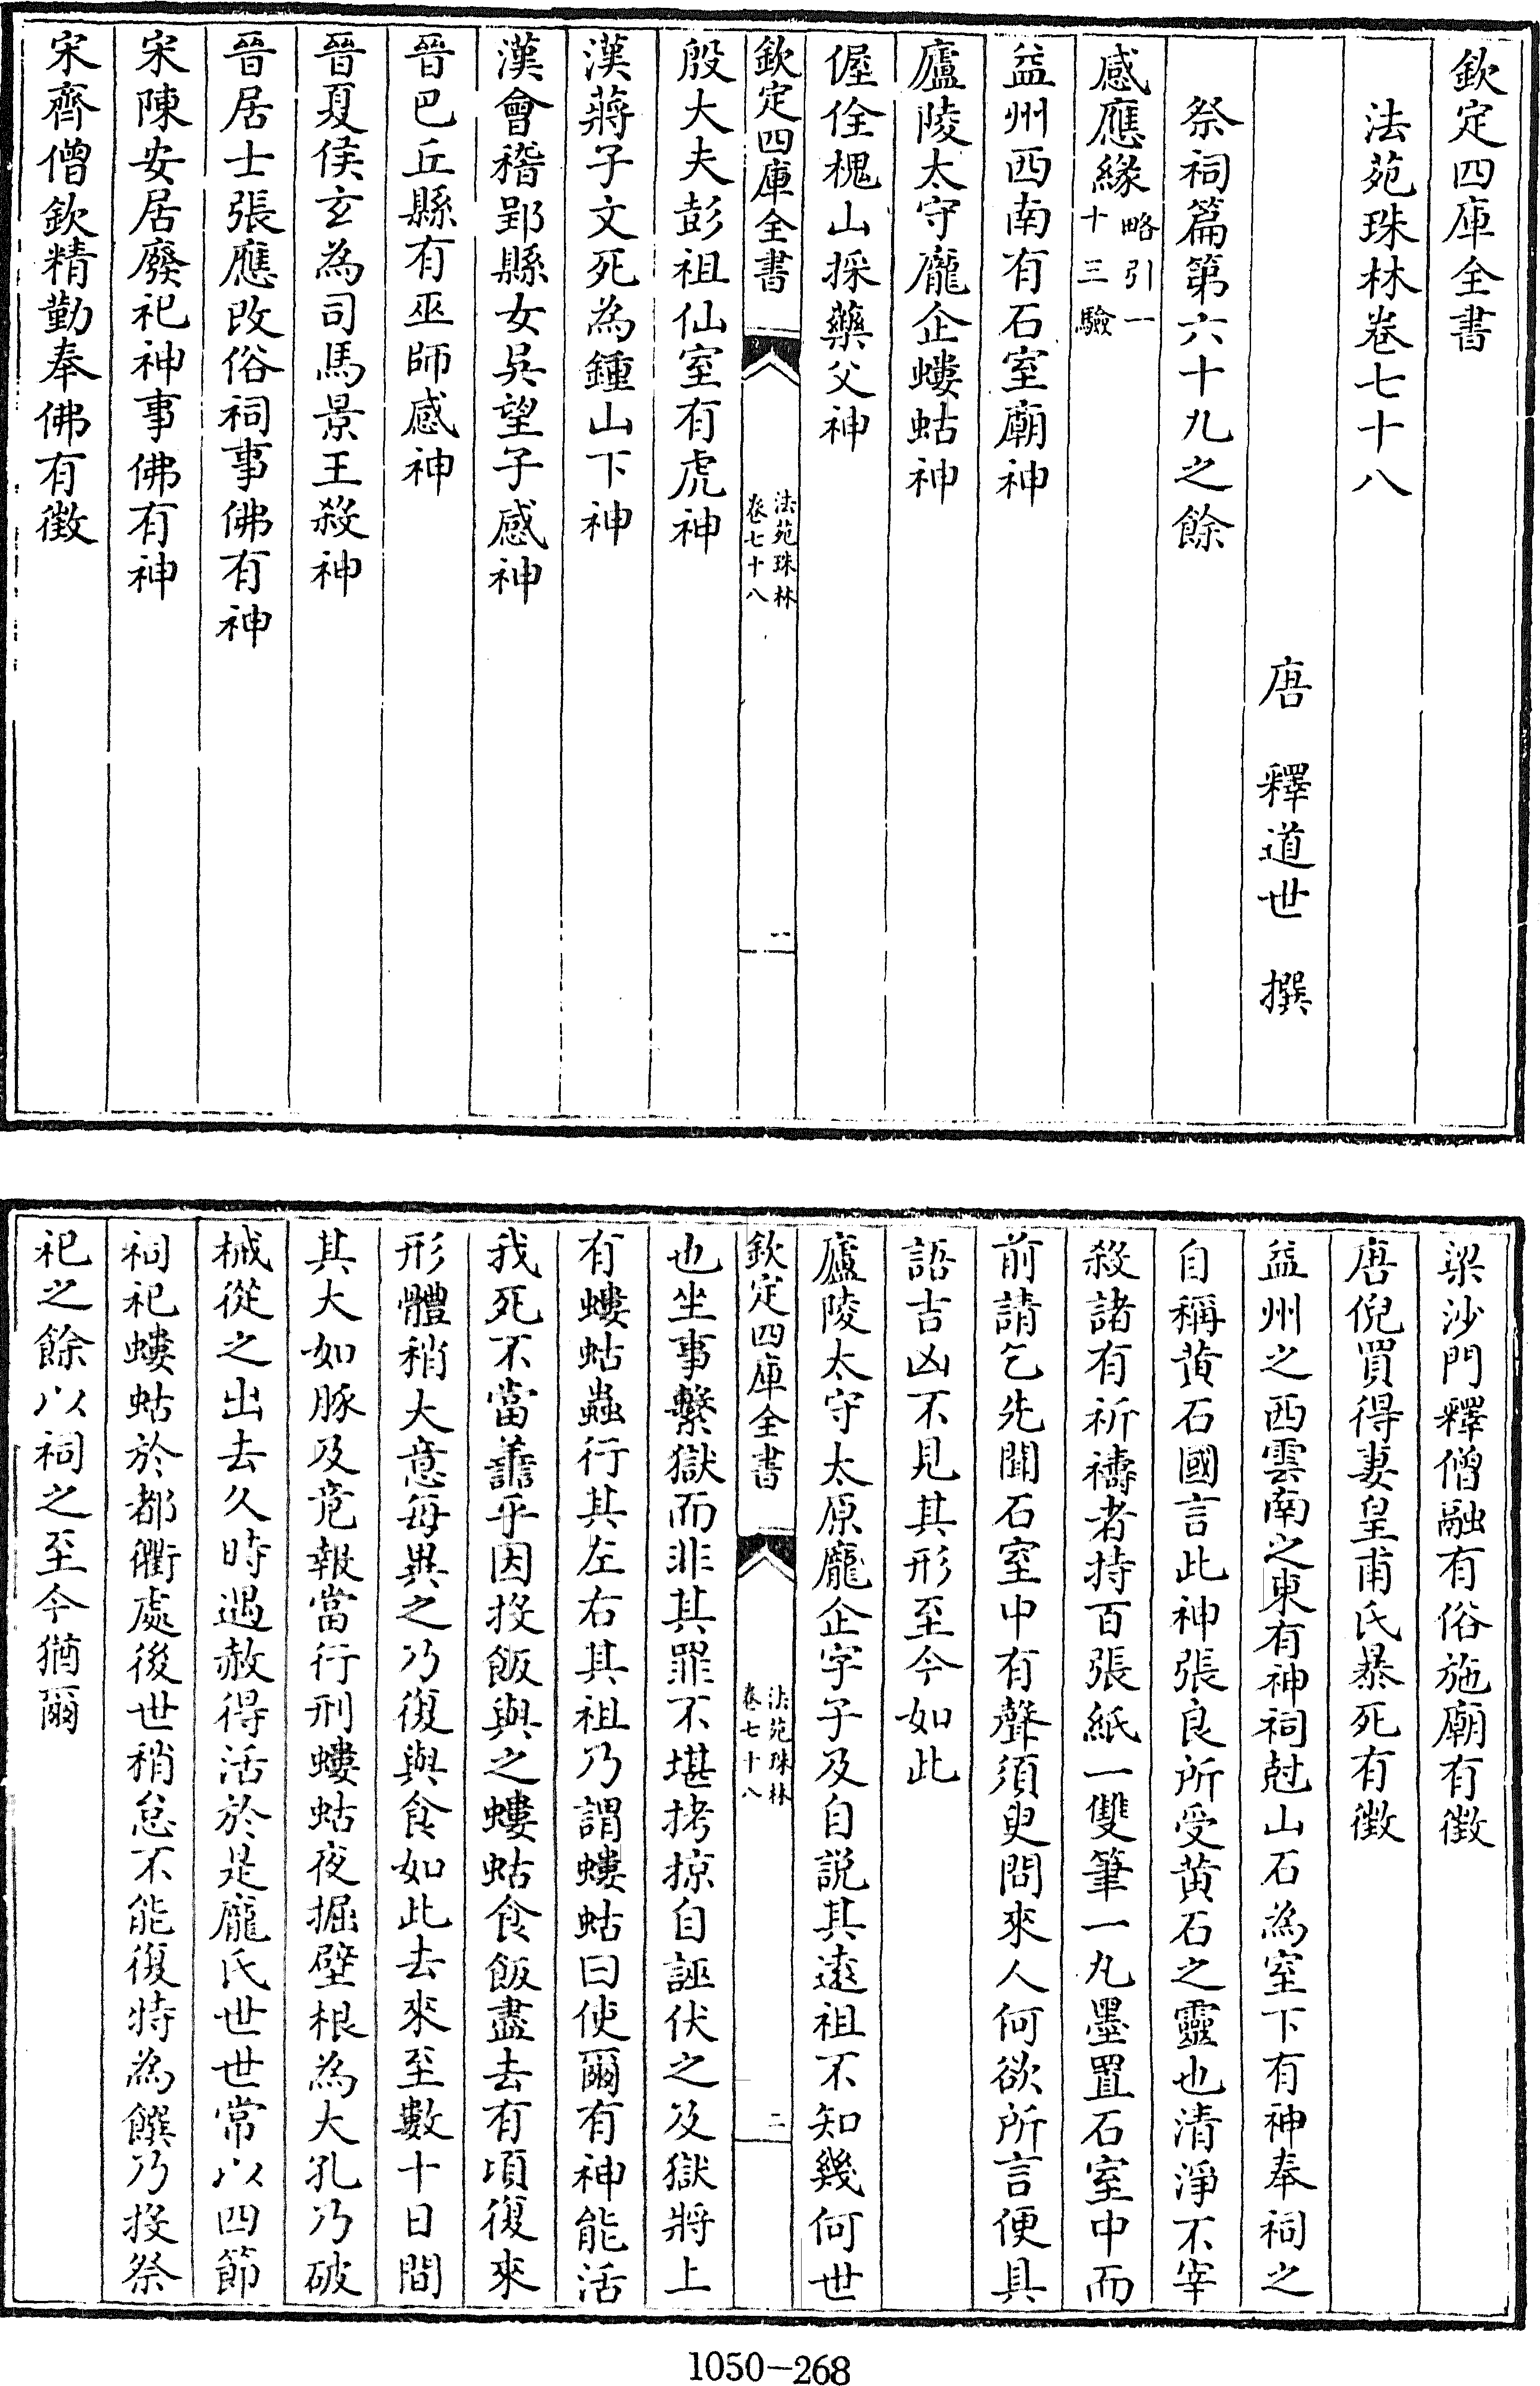 欽定四庫全書
法苑珠林卷七十八
唐 釋道世 撰
祭祠篇第六十九之餘
感應緣略引一十三驗
益州西南有石室廟神
廬陵太守龐企螻蛄神
偓佺槐山採藥父神
欽定四庫全書 法苑珠林卷七十八 一
殷大夫彭祖仙室有虎神
漢蔣子文死為鍾山下神
漢會稽鄞縣女吳望子感神
晉巴丘縣有巫師感神
晉夏侯玄為司馬景王殺神
晉居士張應改俗祠事佛有神
宋陳安居廢祀神事佛有神
宋齊僧欽精勤奉佛有徵
梁沙門釋僧融有俗施廟有徵
唐倪買得妻皇甫氏暴死有徵
益州之西雲南之東有神祠尅山石為室下有神奉祠之
自稱黄石國言此神張良所受黄石之靈也清淨不宰
殺諸有祈禱者持百張紙一雙筆一丸墨置石室中而
前請乞先聞石室中有聲須臾問來人何欲所言便具
語吉凶不見其形至今如此
廬陵太守太原龐企字子及自說其遠祖不知幾何世
欽定四庫全書 法苑珠林卷七十八 二
也坐事繫獄而非其罪不堪拷掠自誣伏之及獄將上
有螻蛄蟲行其左右其祖乃謂螻蛄曰使爾有神能活
我死不當善乎因投飯與之螻蛄食飯盡去有頃復來
形體稍大意每異之乃復與食如此去來至數十日間
其大如豚及竟報當行刑螻蛄夜掘壁根為大孔乃破
械從之出去久時遇赦得活於是龐氏世世常以四節
祠祀螻蛄於都衢處後世稍怠不能復特為饌乃投祭
祀之餘以祠之至今猶爾
1050-268